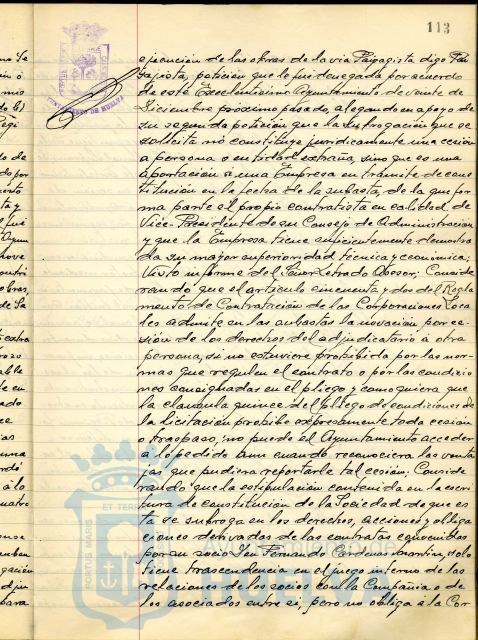 113
ejecución de las obras de la via Paisagista digo Pai
sajista, petición que le fué denegada por acuerdo
de este Excelentísimo Ayuntamiento de veinte de
Diciembre próximo pasado, alegando en apoyo de
su segunda petición que la subrogación que se
solicita no constituye juridicamente una cesión
a persona o entidad extraña, sino que es una
aportación a una Empresa en trámite de cons
titución en la fecha de la subasta, de la que for
ma parte el propio contratista en calidad de
Vice-Presidente de su Consejo de Administración
y que la Empresa tiene suficientemente demostra
da su mayor superioridad técnica y económica;
Visto informe del Señor Letrado Asesor; Conside
rando que el artículo cincuenta y dos del Regla
mento de Contratación de las Corporaciones Loca
les admite en las subastas la novación por ce
sión de los derechos del adjudicatario á otra
persona, si no estuviere prohibida por las nor
mas que regulen el contrato o por las condicio
nes consignadas en el pliego y como quiera que
la clausula quince del pliego de condiciones de
la licitación prohibe expresamente toda cesión
o traspaso, no puede el Ayuntamiento acceder
a lo pedido aun cuando reconociera las venta
jas que pudiera reportarle tal cesión; Conside
rando que la estipulación contenida en la escri
tura de constitución de la Sociedad de que es
ta se subroga en los derechos, acciones y obliga
ciones derivadas de las contratas conocidas
por su socio Don Fernando Cárdenas Martín, solo
tiene trascendencia en el juego interno de las
relaciones de los socios con la Compañia o de
los asociados entre si, pero no obliga a la Cor